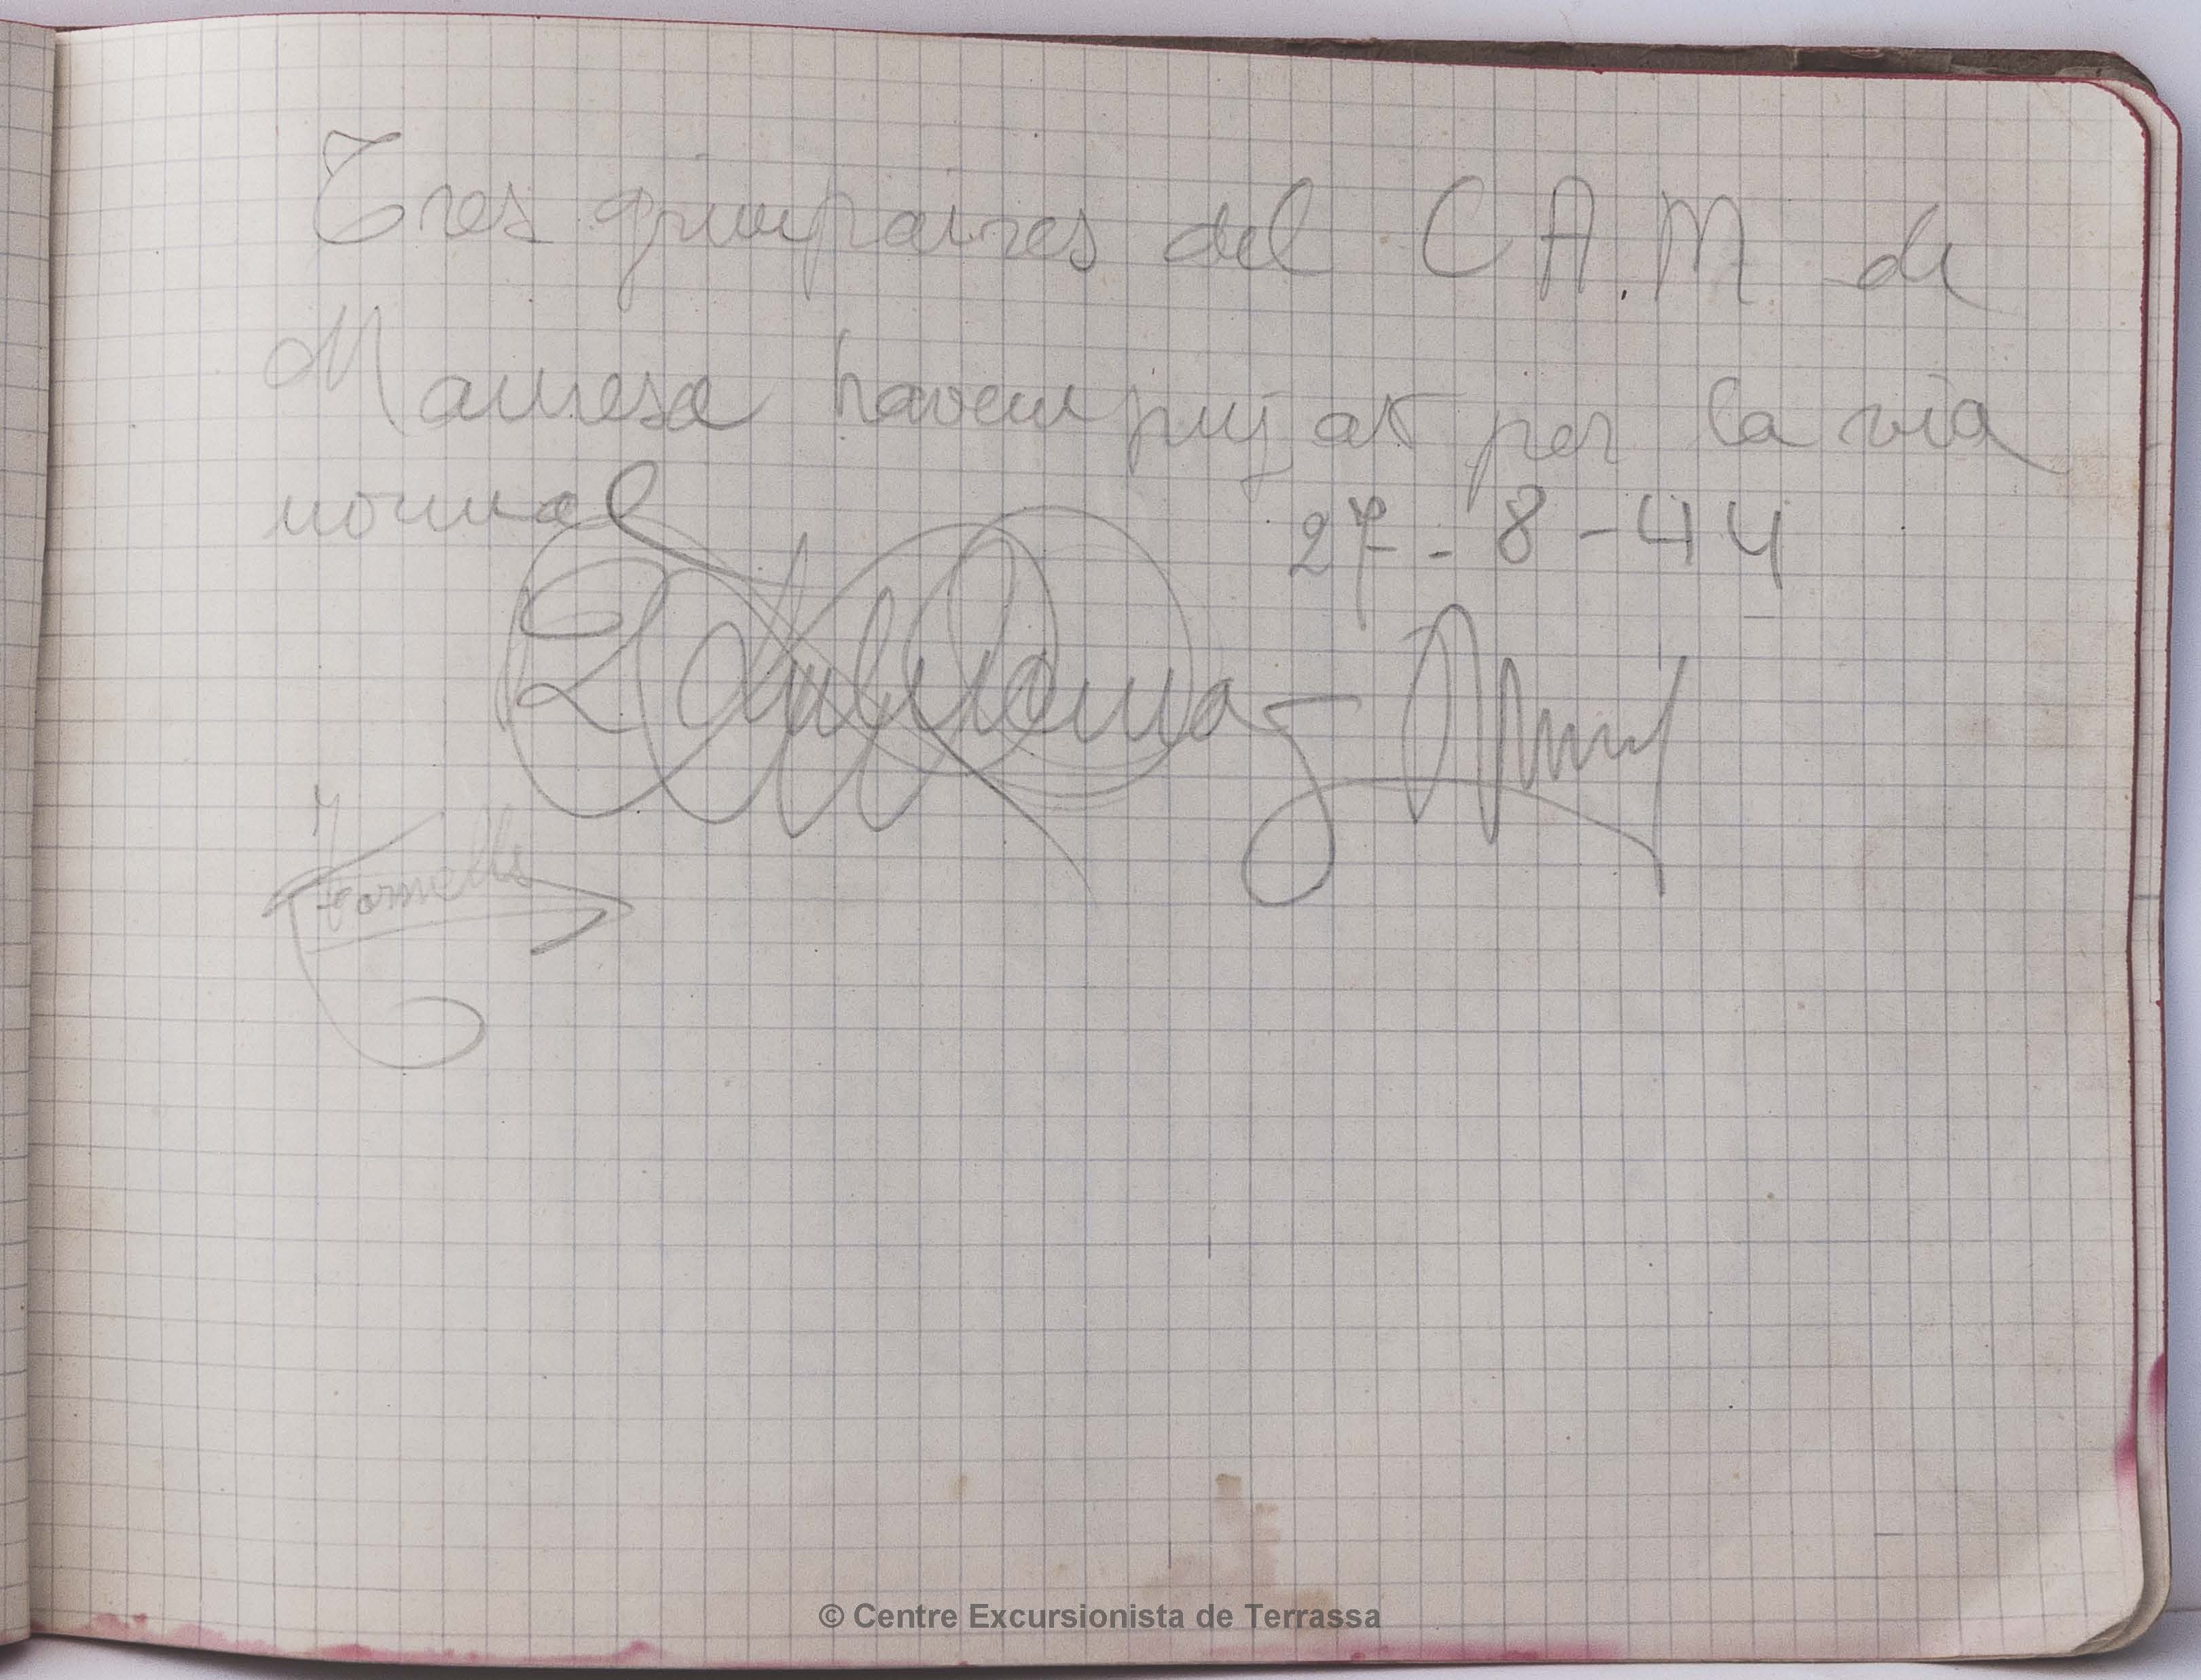 Tres grimpaires del C.A.M de
Manresa havem pujat per la via
normal 27-8-44
J Tornells
© Centre Excursionista de Terrassa